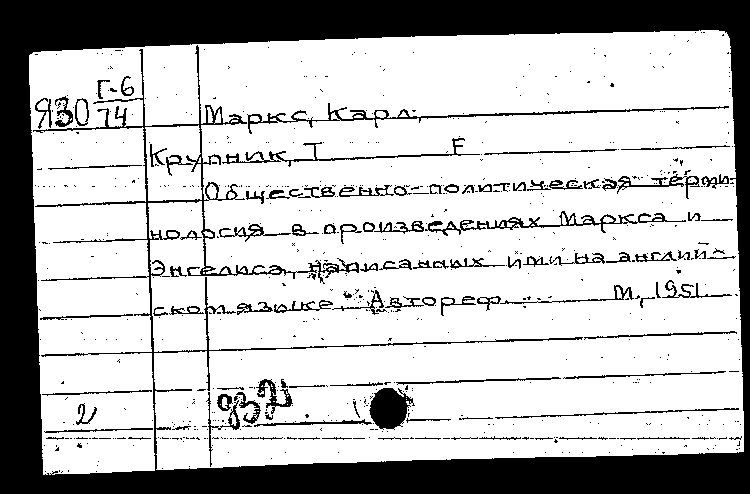 Г-6
ЯЗ0 74 Маркс, Карл.
Крупник, Т F
Общественно-политическая терми-
нология в произведениях Маркса и
Энгельса, написанных ими на англий-
ском языке. Автореф. М., 1951
2